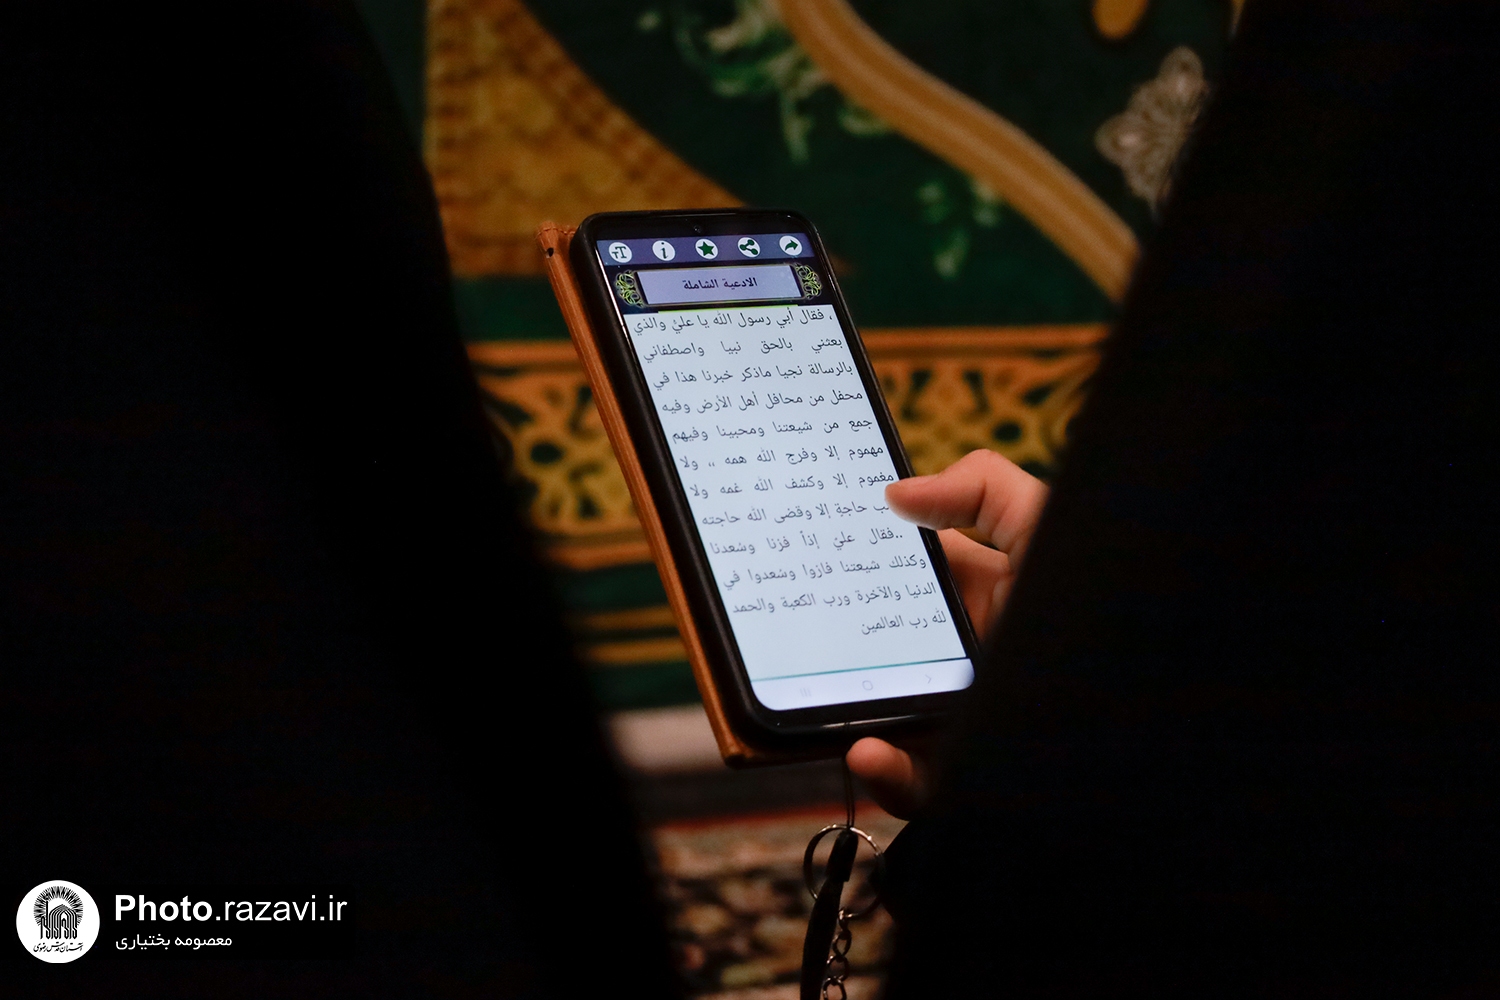 الادعية الشاملة
، فقال أبي رسول الله يا عليُ والذي
بعثني بالحق نبيا واصطفاني
بالرسالة نجيا ماذكر خبرنا هذا في
محفل من محافل أهل الأرض وفيه
جمع من شيعتنا ومحبينا وفيهم
مهموم إلا وفرج الله همه ،، ولا
مغموم إلا وكشف الله غمه ولا
حاجةٍ إلا وقضى الله حاجته
..فقال عليٌ إذاً فزنا وسُعدنا
وكذلك شيعتنا فازوا وسُعدوا في
الدنيا والآخرة ورب الكعبة والحمد
لله رب العالمين
Photo.razavi.ir
معصومه بختیاری
آستان قدس رضوی